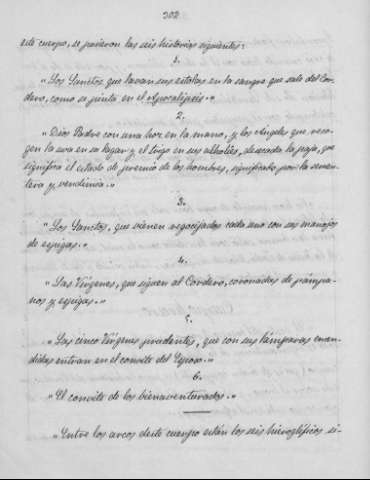 302
este cuerpo, se pusieron las seis historias siguientes:
1.
"Los Santos que lavan sus estolas en la sangre que sale del Cor-
dero, como se pinta en el Apocalipsis."
2.
"Dios Padre con una hoz en la mano, y los Angeles que reco-
gen la uva en su lagar y el trigo en sus alholíes, desechada la paja, que
significa el estado de premio de los hombres, significado por la semen-
tera y vendimia."
3.
"Los Santos, que vienen regocijados cada uno con sus manojos
de espigas."
4.
"Las Vírgenes, que siguen al Cordero, coronadas de pámpa-
nos y espigas."
5.
"Las cinco Vírgenes prudentes, que con sus lámparas encen-
didas entran en el convite del Esposo."
6.
"El convite de los bienaventurados."
"Entre los arcos deste cuerpo están los seis hieroglíficos si-